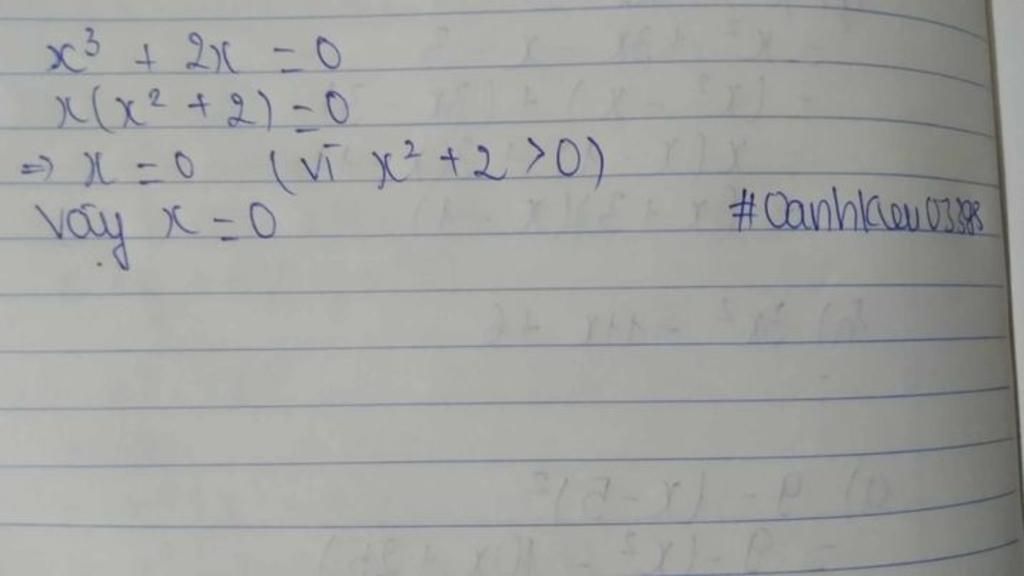 x³ + 2x = 0
x(x² + 2) = 0
=> x = 0 (vì x² + 2 > 0)
Vậy x = 0 #Oanhkieu03388